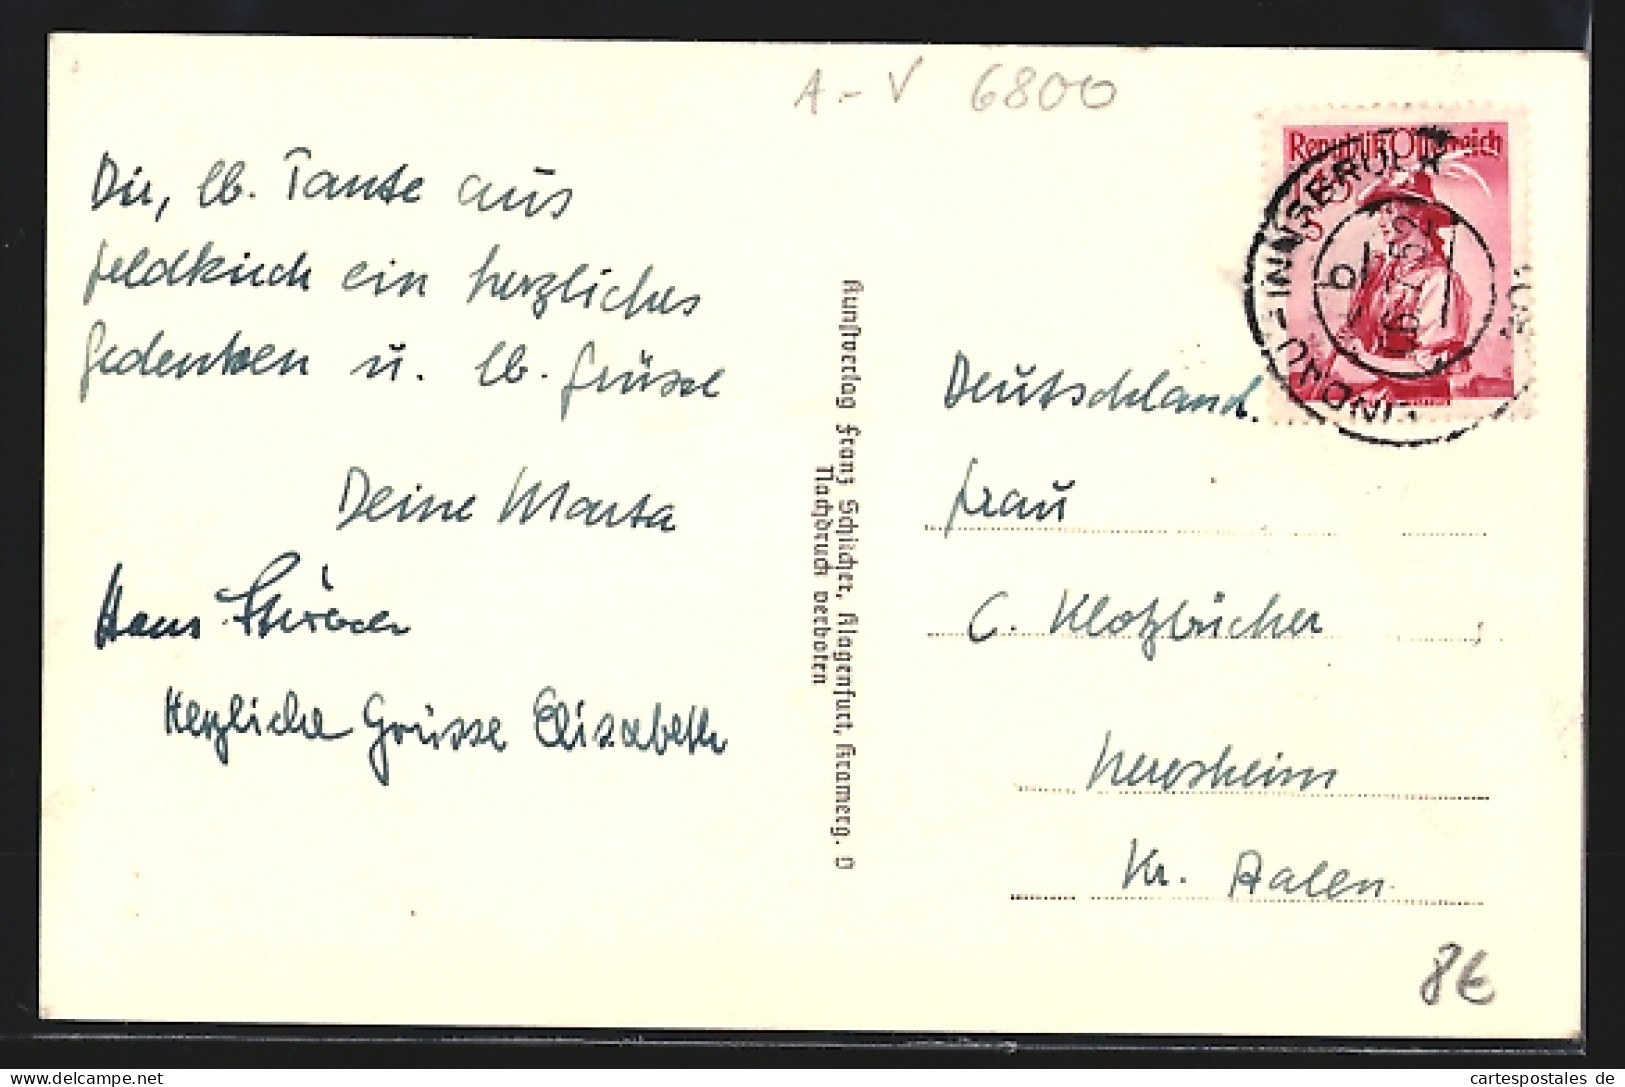 A - V 6800
Dir, lb. Tante aus
Feldkirch ein herzliches
Gedenken u. lb. Grüsse
Deine Marta
Hans
Herzliche Grüsse Elisabeth
Kunstverlag Franz Schilcher, Klagenfurt, Kramerg. 9
Nachdruck verboten
Republik Österreich
LINDAU-INNSBRUCK
Deutschland.
Frau
C. Klotzbücher
Neresheim
Kr. Aalen.
8€
delcampe.net
cartespostales de